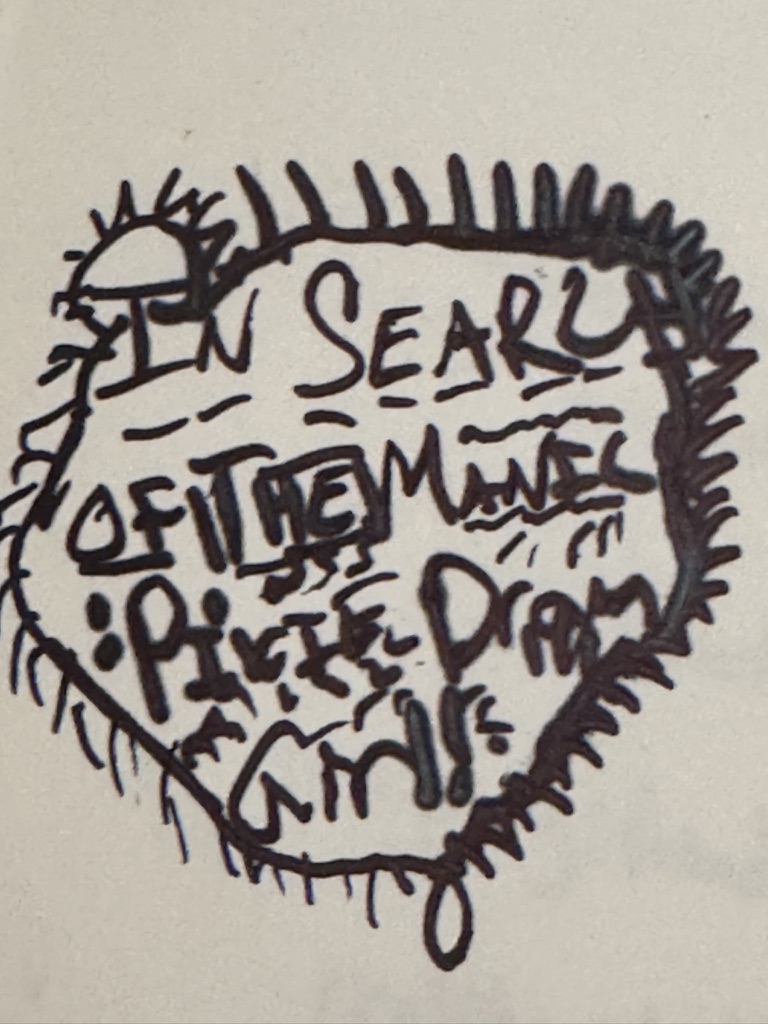 IN SEARCH
OF THE MANIC
PIXIE Dream
Girl!